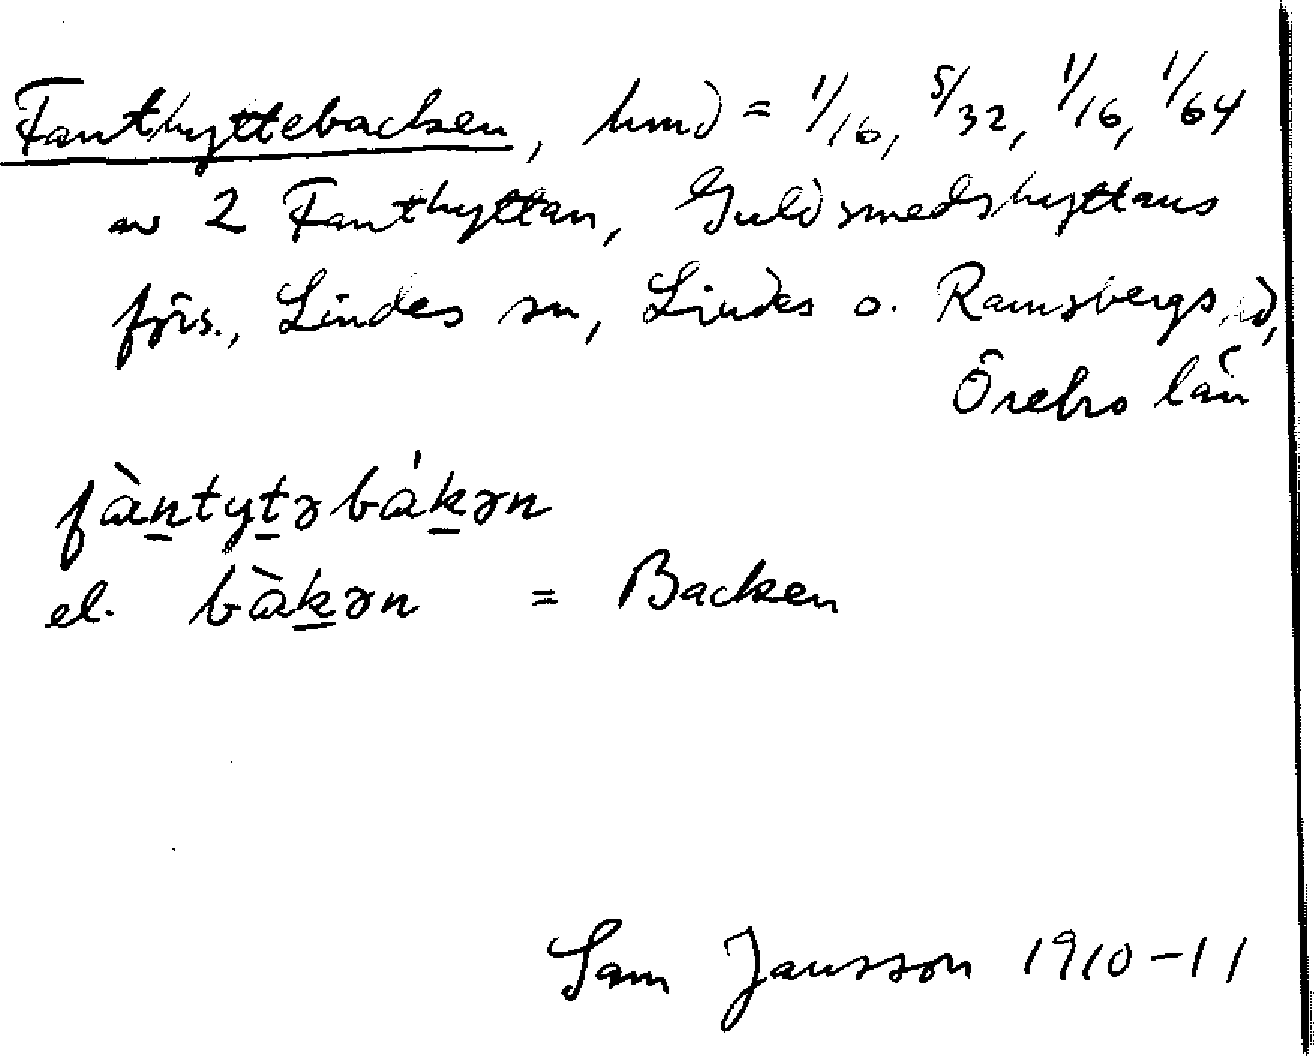 Fanthyttebacken, hmd = 1/16, 5/32, 1/16, 1/64
av 2 Fanthyttan, Guldsmedshyttans
förs., Lindes sn, Lindes o. Ramsbergs hd,
Örebro län
fàntytəbákən
el. bàkən = Backen
Sam Jansson 1910-11